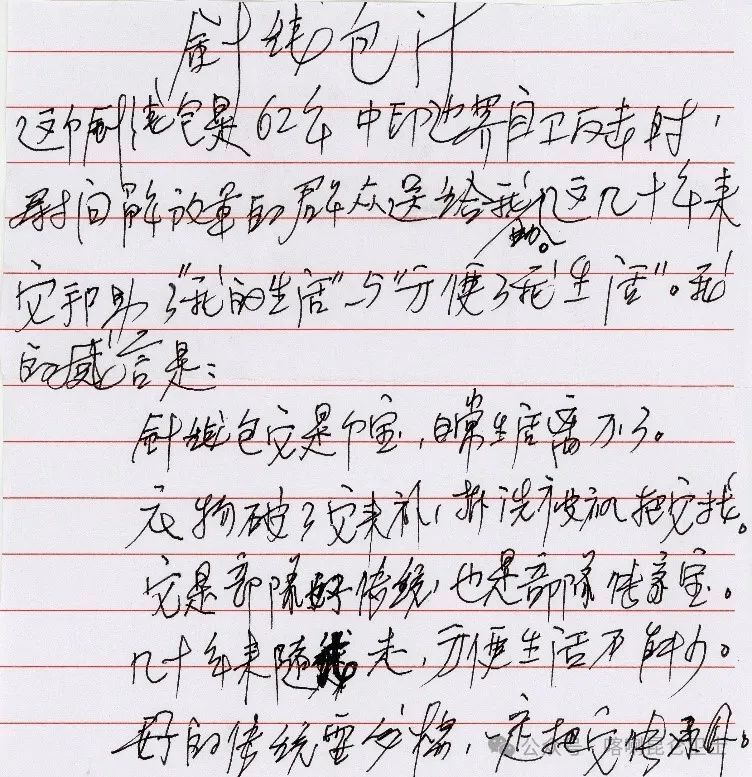 针线包计
这个针线包是62年中印边界自卫反击时,
新解放军的群众送给我几这几十年来
助。
它和助了"我的生活"与"方便了我生活"。我
的感言是:
针线包它是个宝,日常生活离不了。
衣物破了它来补,拆洗被褥把它找。
它是部队好传统,也是部队传家宝。
几十年来随我走,方便生活不能少。
好的传统要发扬,一定把它传
公众号·喀喇昆仑卫士